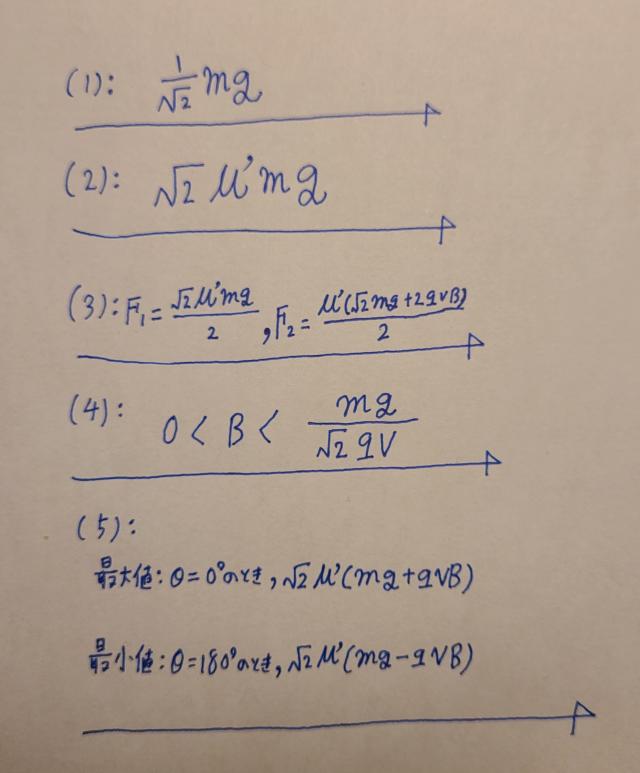 (1): 1/√2 mg
(2): √2 μ'mg
(3): F₁ = √2μ'mg/2, F₂ = μ'(√2mg+2qvB)/2
(4): 0 < B < mg/√2qV
(5):
最大値: θ=0°のとき, √2 μ'(mg+qVB)
最小値: θ=180°のとき, √2 μ'(mg-qVB)